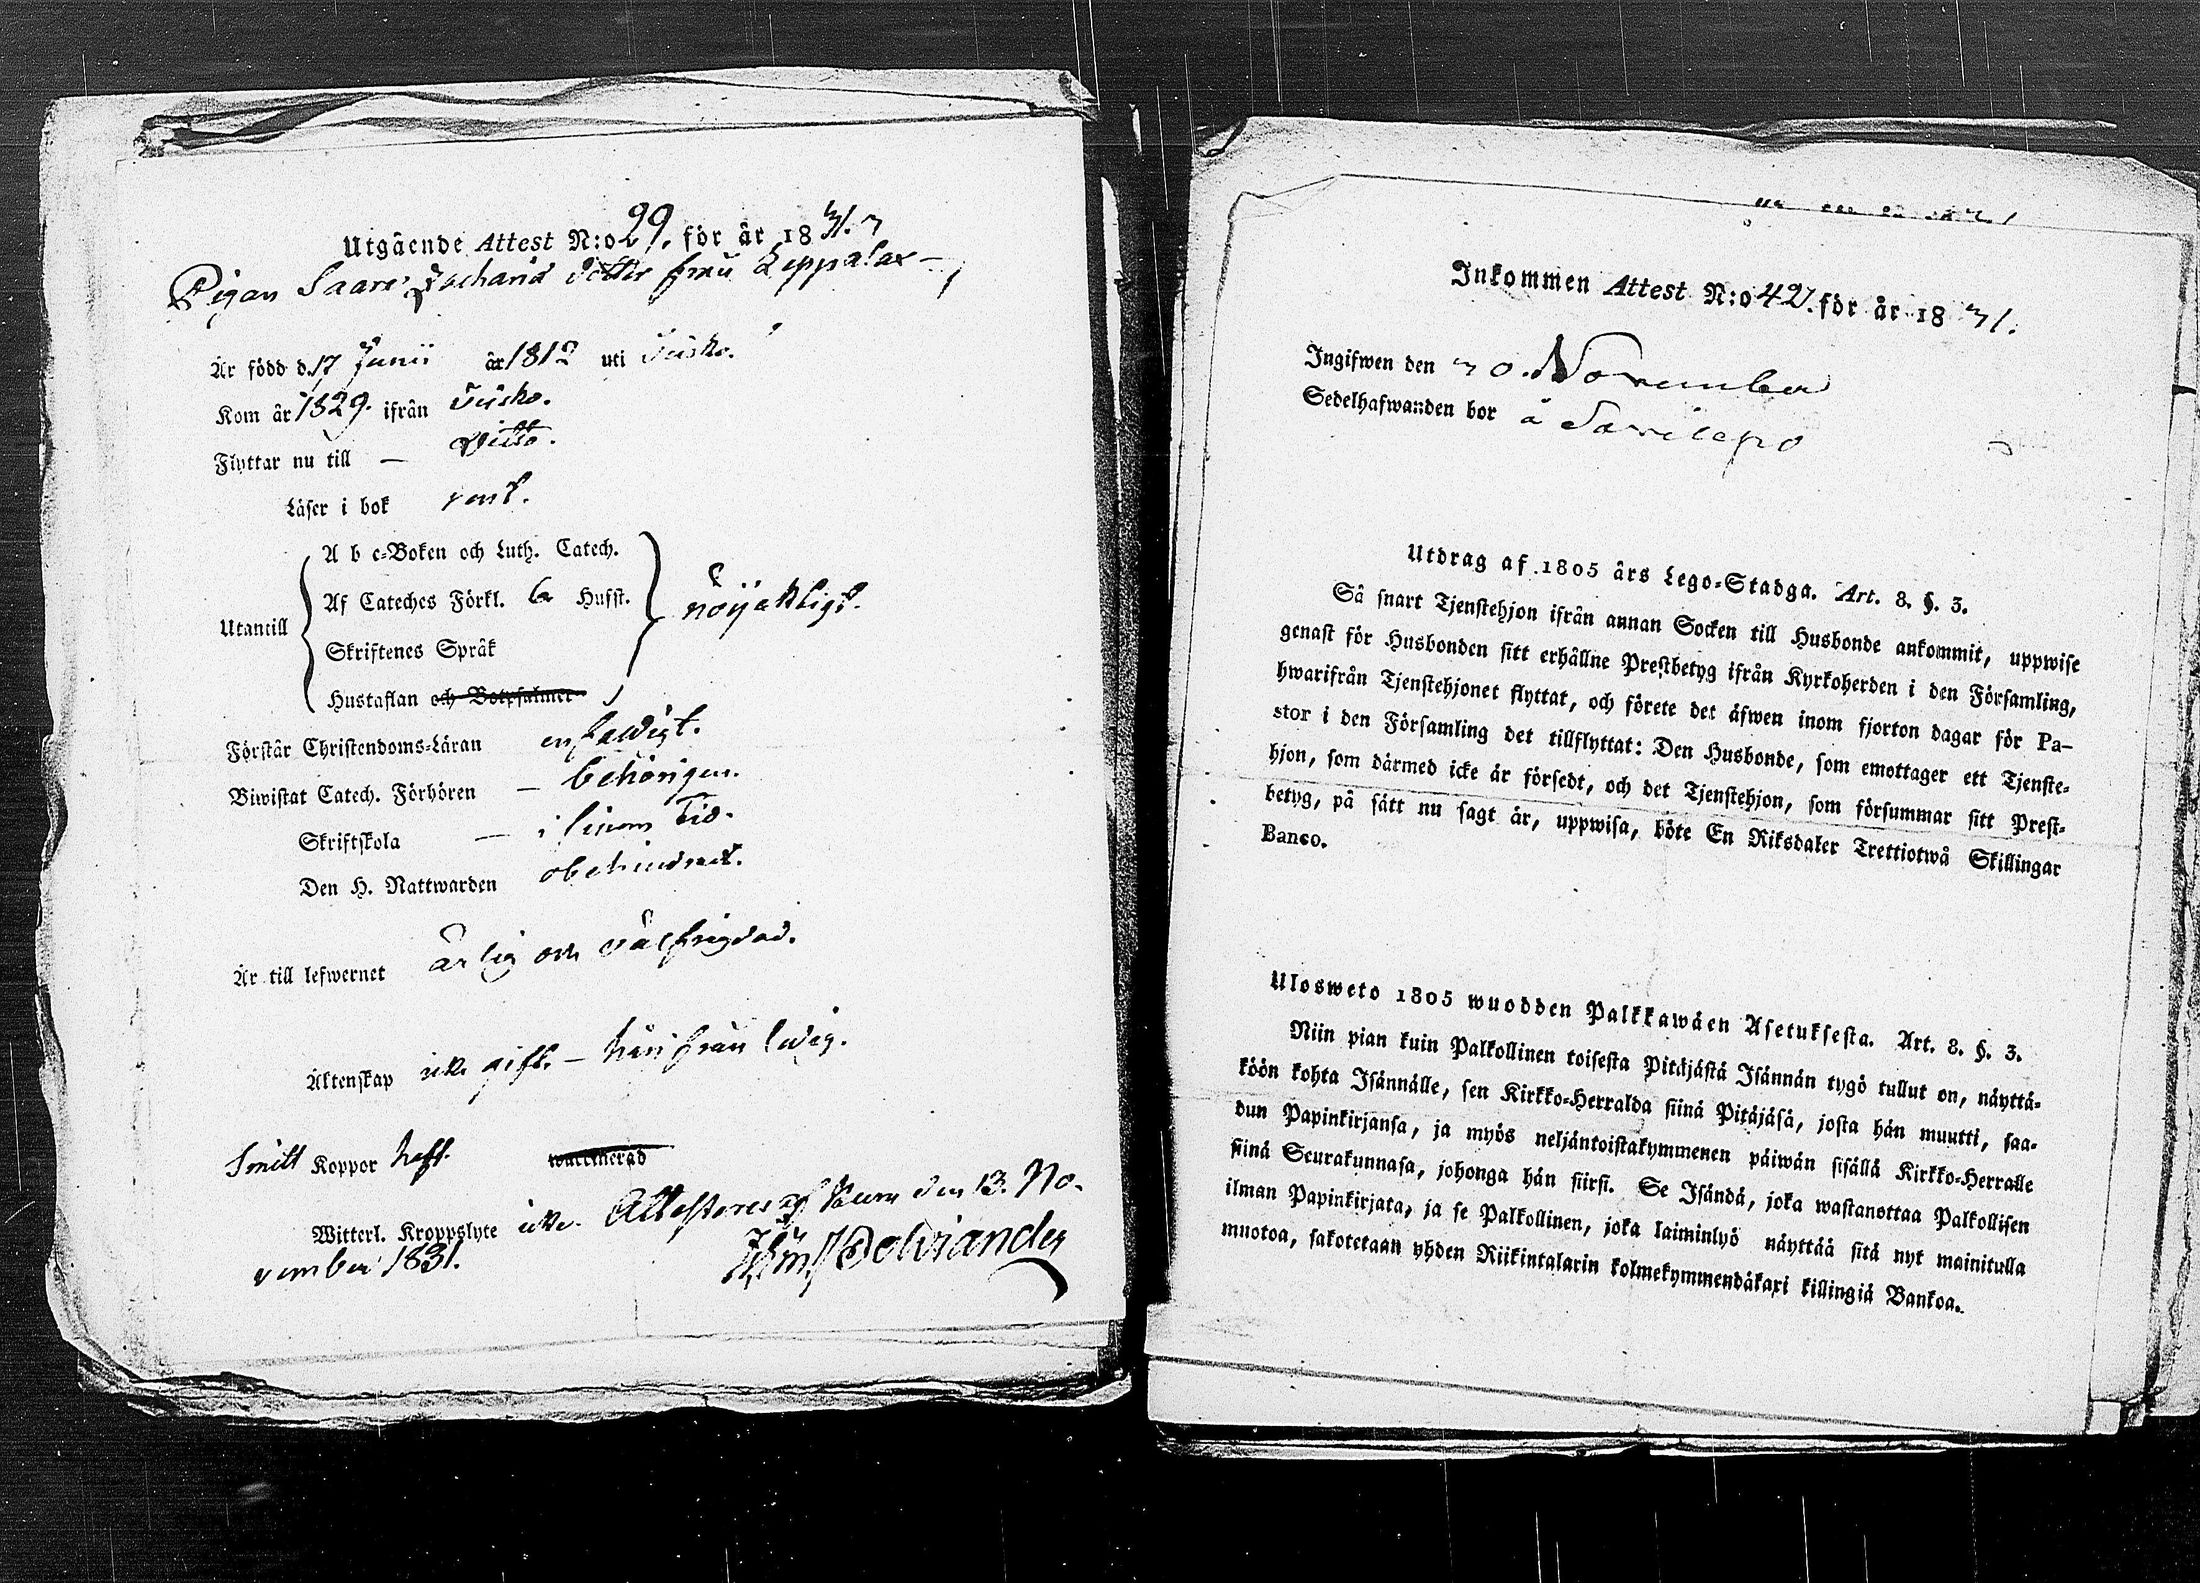 Utgående Attest N:o 29. för år 1831.
Pigan Saara Zacharia dotter från Leppalax
År född d. 17 Junii år 1812 uti Tusko.
Kom år 1829. ifrån Tusko.
Flyttar nu till — Ditto.
Läser i bok rent.
A b c-Boken och Luth. Catech.
Af Cateches Förkl. Hufst.
Utantill nöijaktligt.
Skriftenes Språk
Hustaflan och Botpsalmer
Förstår Christendoms-Läran enfaldigt.
Biwistat Catech. Förhören — behörigen.
Skriftskola — i sinom Tid.
Den H. Nattwarden obehindrat.
Är till lefwernet ärlig och välfrägdad.
Äktenskap icke gift. — härifrån ledig.
Koppor haft. waccinerad
Witterl. Kroppslyte icke. Attesteras af den 13. No-
vember 1831.
Inkommen Attest N:o 42. för år 1831.
Ingifwen den 30. November
Sedelhafwanden bor å
Utdrag af 1805 års Lego-Stadga. Art. 8. §. 3.
Så snart Tjenstehjon ifrån annan Socken till Husbonde ankommit, uppwise
genast för Husbonden sitt erhållne Prestbetyg ifrån Kyrkoherden i den Församling,
hwarifrån Tjenstehjonet flyttat, och förete det äfwen inom fjorton dagar för Pa-
stor i den Församling det tillflyttat: Den Husbonde, som emottager ett Tjenste-
hjon, som därmed icke är försedt, och det Tjenstehjon, som försummar sitt Prest-
betyg, på sätt nu sagt är, uppwisa, böte En Riksdaler Trettiotwå Skillingar
Banco.
Ulosweto 1805 wuodden Palkkawäen Asetuksesta. Art. 8. §. 3.
Niin pian kuin Palkollinen toisesta Pitäjästä Isännän tygö tullut on, näyttä-
köön kohta Isännälle, sen Kirkko-Herralda siinä Pitäjäsä, josta hän muutti, saa-
dun Papinkirjansa, ja myös neljäntoistakymmenen päiwän sisällä Kirkko-Herralle
siinä Seurakunnasa, johonga hän siirsi. Se Isändä, joka wastanottaa Palkollisen
ilman Papinkirjata, ja se Palkollinen, joka laiminlyö näyttää sitä nyt mainitulla
muotoa, sakotetaan yhden Riikintalarin kolmekymmendäkaxi killingiä Bankoa.